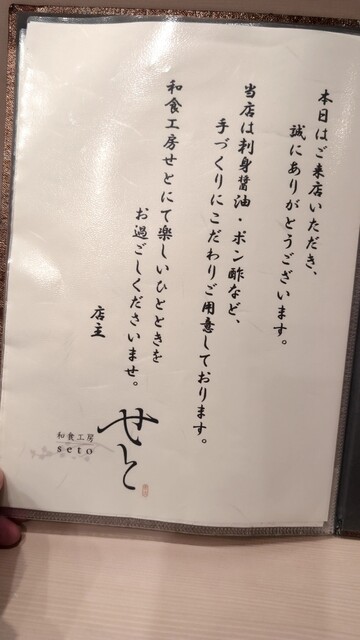 本日はご来店いただき、
誠にありがとうございます。
当店は刺身醤油・ポン酢など、
手づくりにこだわりご用意しております。
和食工房せとにて楽しいひとときを
お過ごしくださいませ。
店主
せと
和食工房
seto